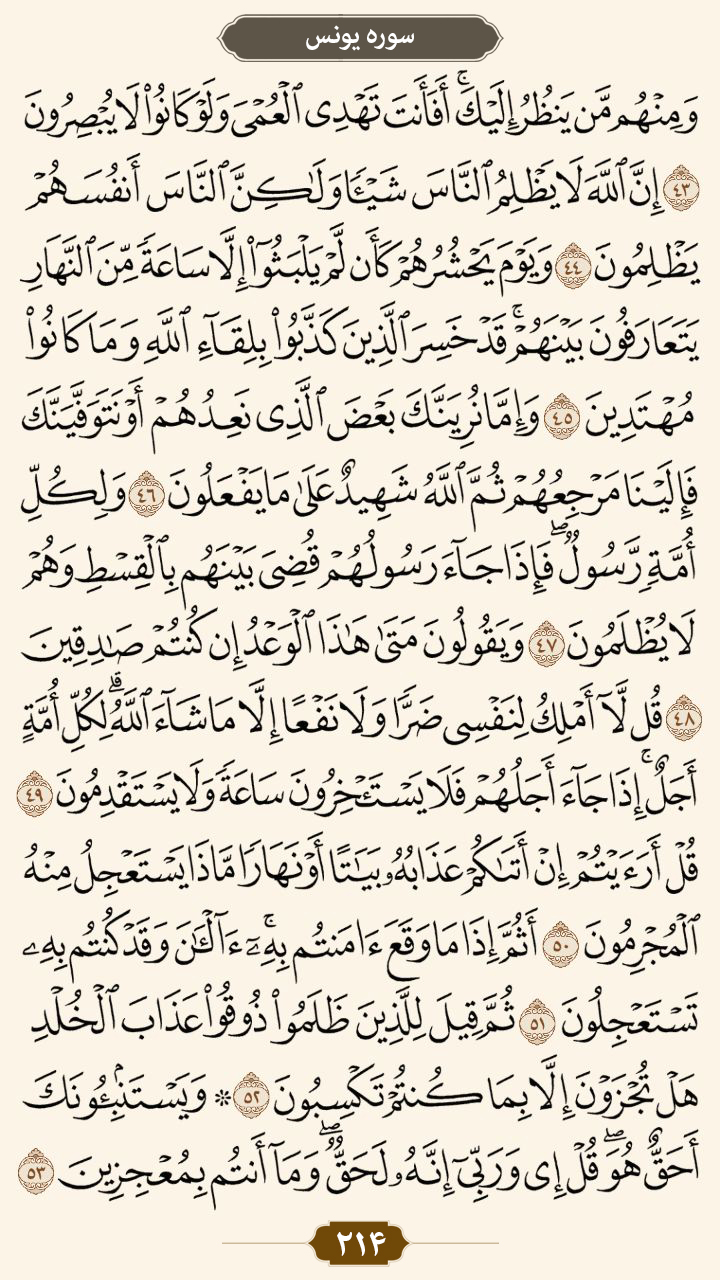 سوره یونس
وَمِنْهُم مَّن يَنظُرُ إِلَيْكَ ۚ أَفَأَنتَ تَهْدِى ٱلْعُمْىَ وَلَوْ كَانُوا۟ لَا يُبْصِرُونَ
﴿٤٣﴾ إِنَّ ٱللَّهَ لَا يَظْلِمُ ٱلنَّاسَ شَيْـًٔا وَلَـٰكِنَّ ٱلنَّاسَ أَنفُسَهُمْ
يَظْلِمُونَ ﴿٤٤﴾ وَيَوْمَ يَحْشُرُهُمْ كَأَن لَّمْ يَلْبَثُوٓا۟ إِلَّا سَاعَةً مِّنَ ٱلنَّهَارِ
يَتَعَارَفُونَ بَيْنَهُمْ ۚ قَدْ خَسِرَ ٱلَّذِينَ كَذَّبُوا۟ بِلِقَآءِ ٱللَّهِ وَمَا كَانُوا۟
مُهْتَدِينَ ﴿٤٥﴾ وَإِمَّا نُرِيَنَّكَ بَعْضَ ٱلَّذِى نَعِدُهُمْ أَوْ نَتَوَفَّيَنَّكَ
فَإِلَيْنَا مَرْجِعُهُمْ ثُمَّ ٱللَّهُ شَهِيدٌ عَلَىٰ مَا يَفْعَلُونَ ﴿٤٦﴾ وَلِكُلِّ
أُمَّةٍ رَّسُولٌ ۖ فَإِذَا جَآءَ رَسُولُهُمْ قُضِىَ بَيْنَهُم بِٱلْقِسْطِ وَهُمْ
لَا يُظْلَمُونَ ﴿٤٧﴾ وَيَقُولُونَ مَتَىٰ هَـٰذَا ٱلْوَعْدُ إِن كُنتُمْ صَـٰدِقِينَ
﴿٤٨﴾ قُل لَّآ أَمْلِكُ لِنَفْسِى ضَرًّا وَلَا نَفْعًا إِلَّا مَا شَآءَ ٱللَّهُ ۗ لِكُلِّ أُمَّةٍ
أَجَلٌ ۚ إِذَا جَآءَ أَجَلُهُمْ فَلَا يَسْتَـْٔخِرُونَ سَاعَةً وَلَا يَسْتَقْدِمُونَ ﴿٤٩﴾
قُلْ أَرَءَيْتُمْ إِنْ أَتَىٰكُمْ عَذَابُهُۥ بَيَـٰتًا أَوْ نَهَارًا مَّاذَا يَسْتَعْجِلُ مِنْهُ
ٱلْمُجْرِمُونَ ﴿٥٠﴾ أَثُمَّ إِذَا مَا وَقَعَ ءَامَنتُم بِهِۦٓ ۚ ءَآلْـَٔـٰنَ وَقَدْ كُنتُم بِهِۦ
تَسْتَعْجِلُونَ ﴿٥١﴾ ثُمَّ قِيلَ لِلَّذِينَ ظَلَمُوا۟ ذُوقُوا۟ عَذَابَ ٱلْخُلْدِ
هَلْ تُجْزَوْنَ إِلَّا بِمَا كُنتُمْ تَكْسِبُونَ ﴿٥٢﴾ ۞ وَيَسْتَنۢبِـُٔونَكَ
أَحَقٌّ هُوَ ۖ قُلْ إِى وَرَبِّىٓ إِنَّهُۥ لَحَقٌّ ۖ وَمَآ أَنتُم بِمُعْجِزِينَ ﴿٥٣﴾
۲۱۴